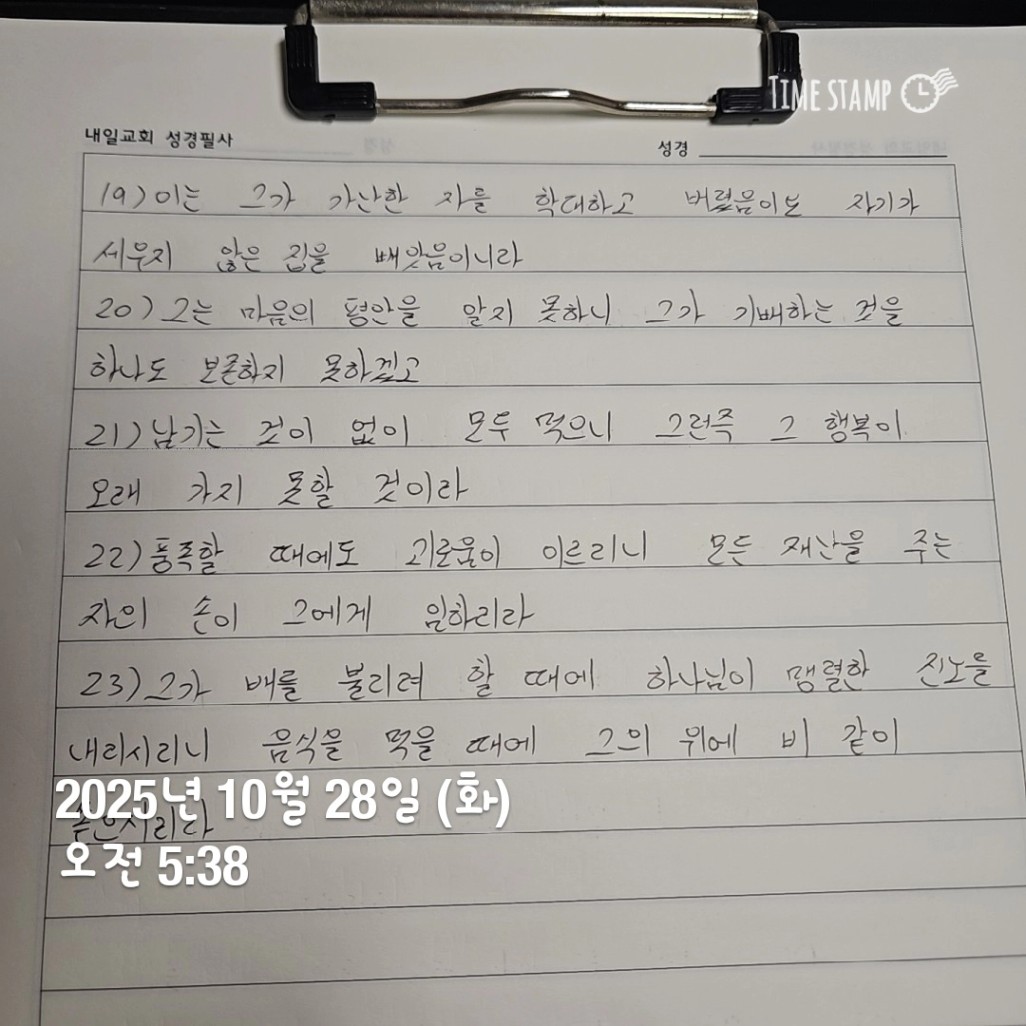 TIME STAMP
내일교회 성경필사
성경
19) 이는 그가 가난한 자를 학대하고 버렸음이요 자기가
세우지 않은 집을 빼앗음이니라
20) 그는 마음의 평안을 알지 못하니 그가 기뻐하는 것을
하나도 보존하지 못하겠고
21) 남기는 것이 없이 모두 먹으니 그런즉 그 행복이
오래 가지 못할 것이라
22) 풍족할 때에도 괴로움이 이르리니 모든 재난을 주는
자의 손이 그에게 임하리라
23) 그가 배를 불리려 할 때에 하나님이 맹렬한 진노를
내리시리니 음식을 먹을 때에 그의 위에 비 같이
쏟으시리라
2025년 10월 28일 (화)
오전 5:38